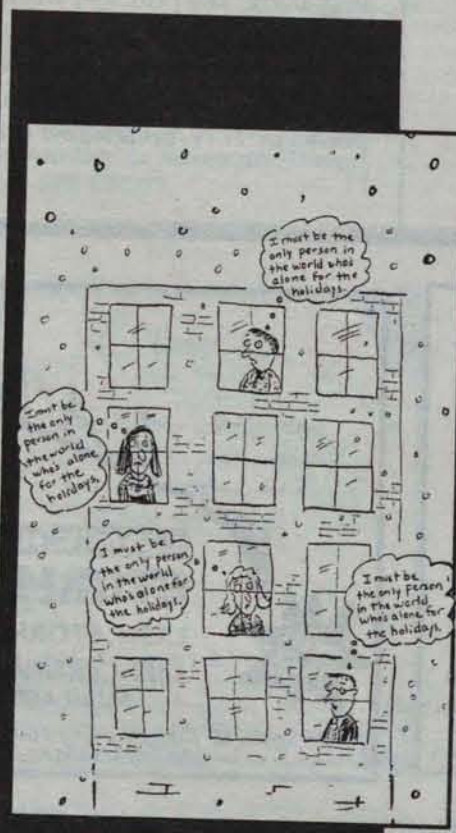 I must be the
only person in
the world whos
alone for the
holidays.
I must be
the only
person in
the world
who's alone
for the
holidays.
I must be
the only person
in the world
who's alone for
the holidays.
I must be
the only person
in the world
who's alone for
the holidays.